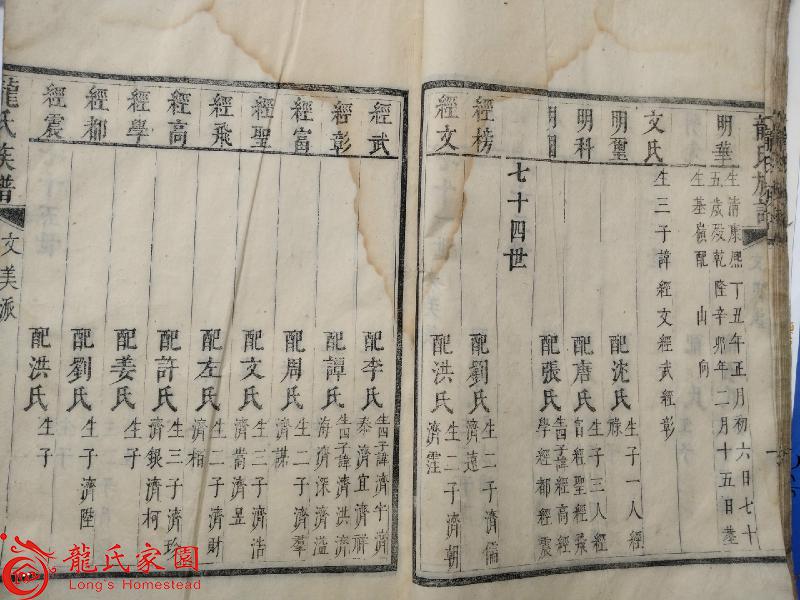 龍氏族譜
明華
生清康熙丁丑年正月初六日七十
五歲歿乾隆辛卯年二月十五日塟
生基嶺配 山向
文氏
生三子諱經文經武經彰
明璽
配沈氏
生子一人經
榜
明科
配唐氏
生子三人經
富經聖經飛
配張氏
生四子諱經高經
學經都經震
七十四世
經榜
配劉氏
生二子濟儒
濟遠
經文
配洪氏
生二子濟朝
濟霪
經武
配李氏
生四子諱濟宇濟
泰濟宜濟祥
經彰
配譚氏
生四子諱濟洪濟
海濟深濟溢
經富
配周氏
生二子濟羣
濟謀
經聖
配文氏
生三子濟浩
濟嵩濟昱
經飛
配左氏
生二子濟財
濟相
經高
配許氏
生三子濟珍
濟銀濟柯
經學
配姜氏
生子
經都
配劉氏
生子濟陞
經震
配洪氏
生子
龍氏族譜
文美派
龍氏家園
Long's Homestead